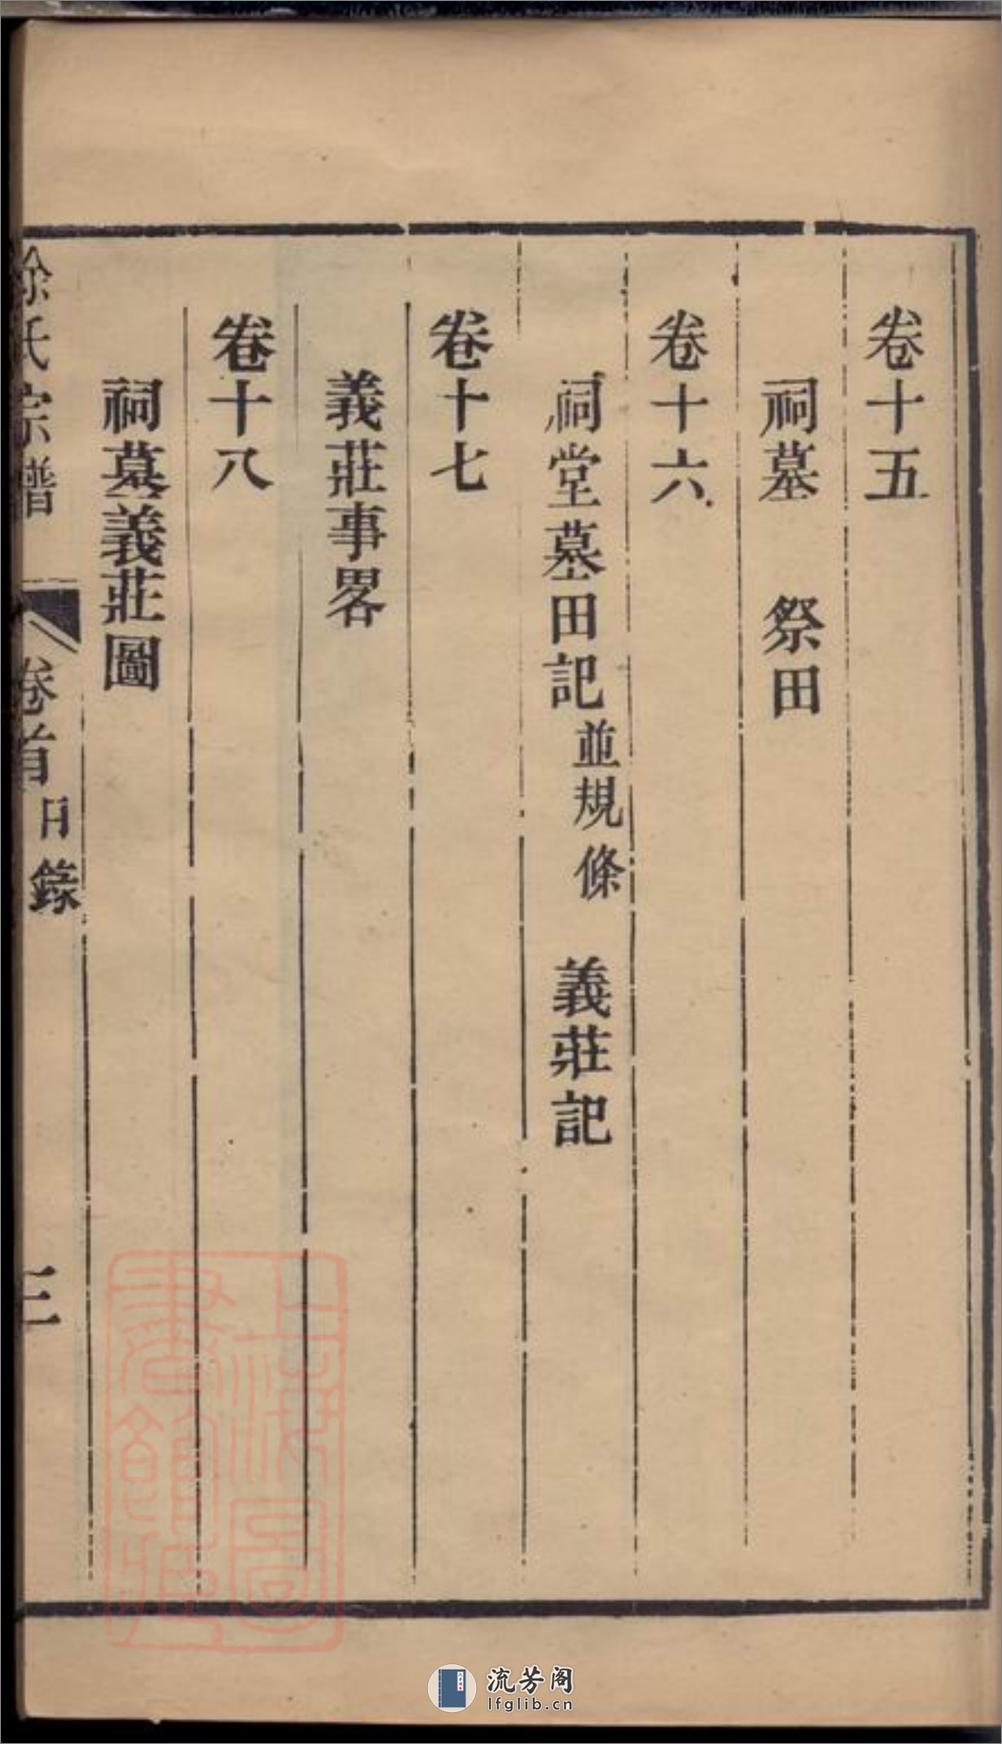 卷十五
祠墓　祭田
卷十六
祠堂墓田記並規條　義莊記
卷十七
義莊事畧
卷十八
祠墓義莊圖
徐氏宗譜　卷首目錄　三
上海圖書館藏
流芳阁
lfglib.cn